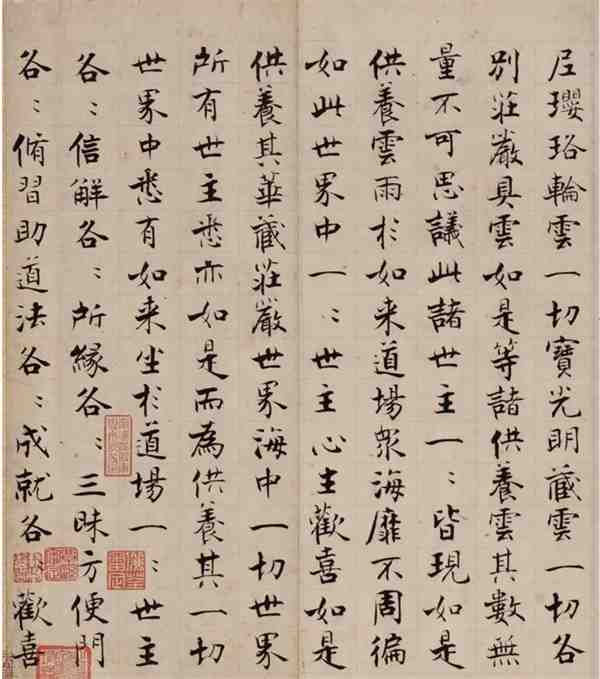 尼瓔珞輪雲一切寶光明藏雲一切各
別莊嚴具雲如是等諸供養雲其數無
量不可思議此諸世主一〻皆現如是
供養雲雨扵如来道場衆海靡不周徧
如此世界中一〻世主心生歡喜如是
供養其華藏莊嚴世界海中一切世界
所有世主悉亦如是而為供養其一切
世界中悉有如来坐扵道場一〻世主
各〻信解各〻所緣各〻三昧方便門
各〻脩習助道法各〻成就各〻歡喜